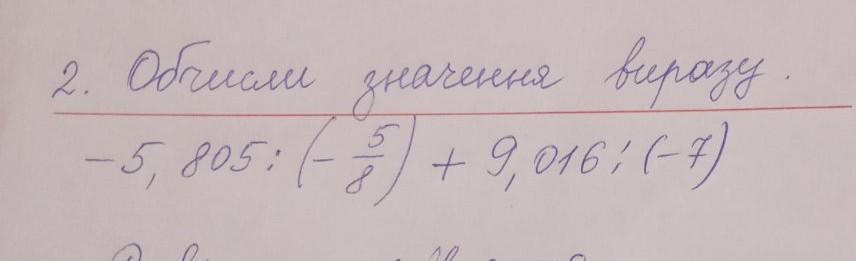 2. Обчисли значення виразу.
-5,805:(-5/8)+9,016:(-7)